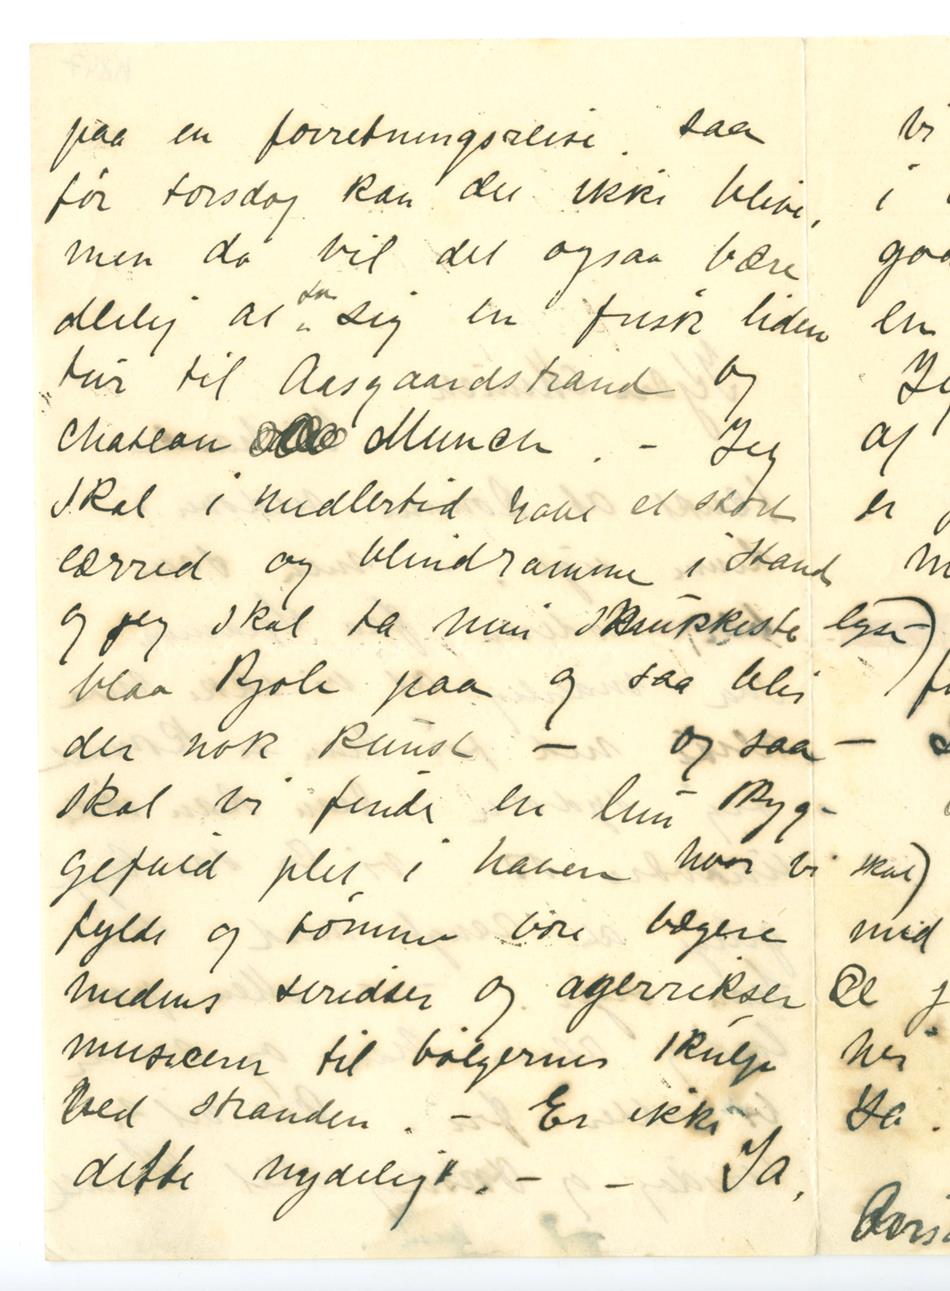 paa en forretningsreise. saa
før torsdag kan det ikke blive,
men da vil det ogsaa være
deilig at ta sig en frisk liden
tur til Aasgaardstrand og
chateau Munch. – Jeg
skal imidlertid have et stort
lærred og blindramme istand
og jeg skal ta min smukkeste lyse)
blaa kjole paa og saa blir
der nok kunst – og saa –
skal vi finde en lun Hyg-
gefuld plet i haven hvor vi skal)
fylde og tømme vore bægere
medens siridser og agerrikser
musicerer til bølgernes skulp
ved stranden. – Er ikke
dette nydeligt. – – Ja,
vi
i
en
Je
af
er
med
Et
hei
Ta.